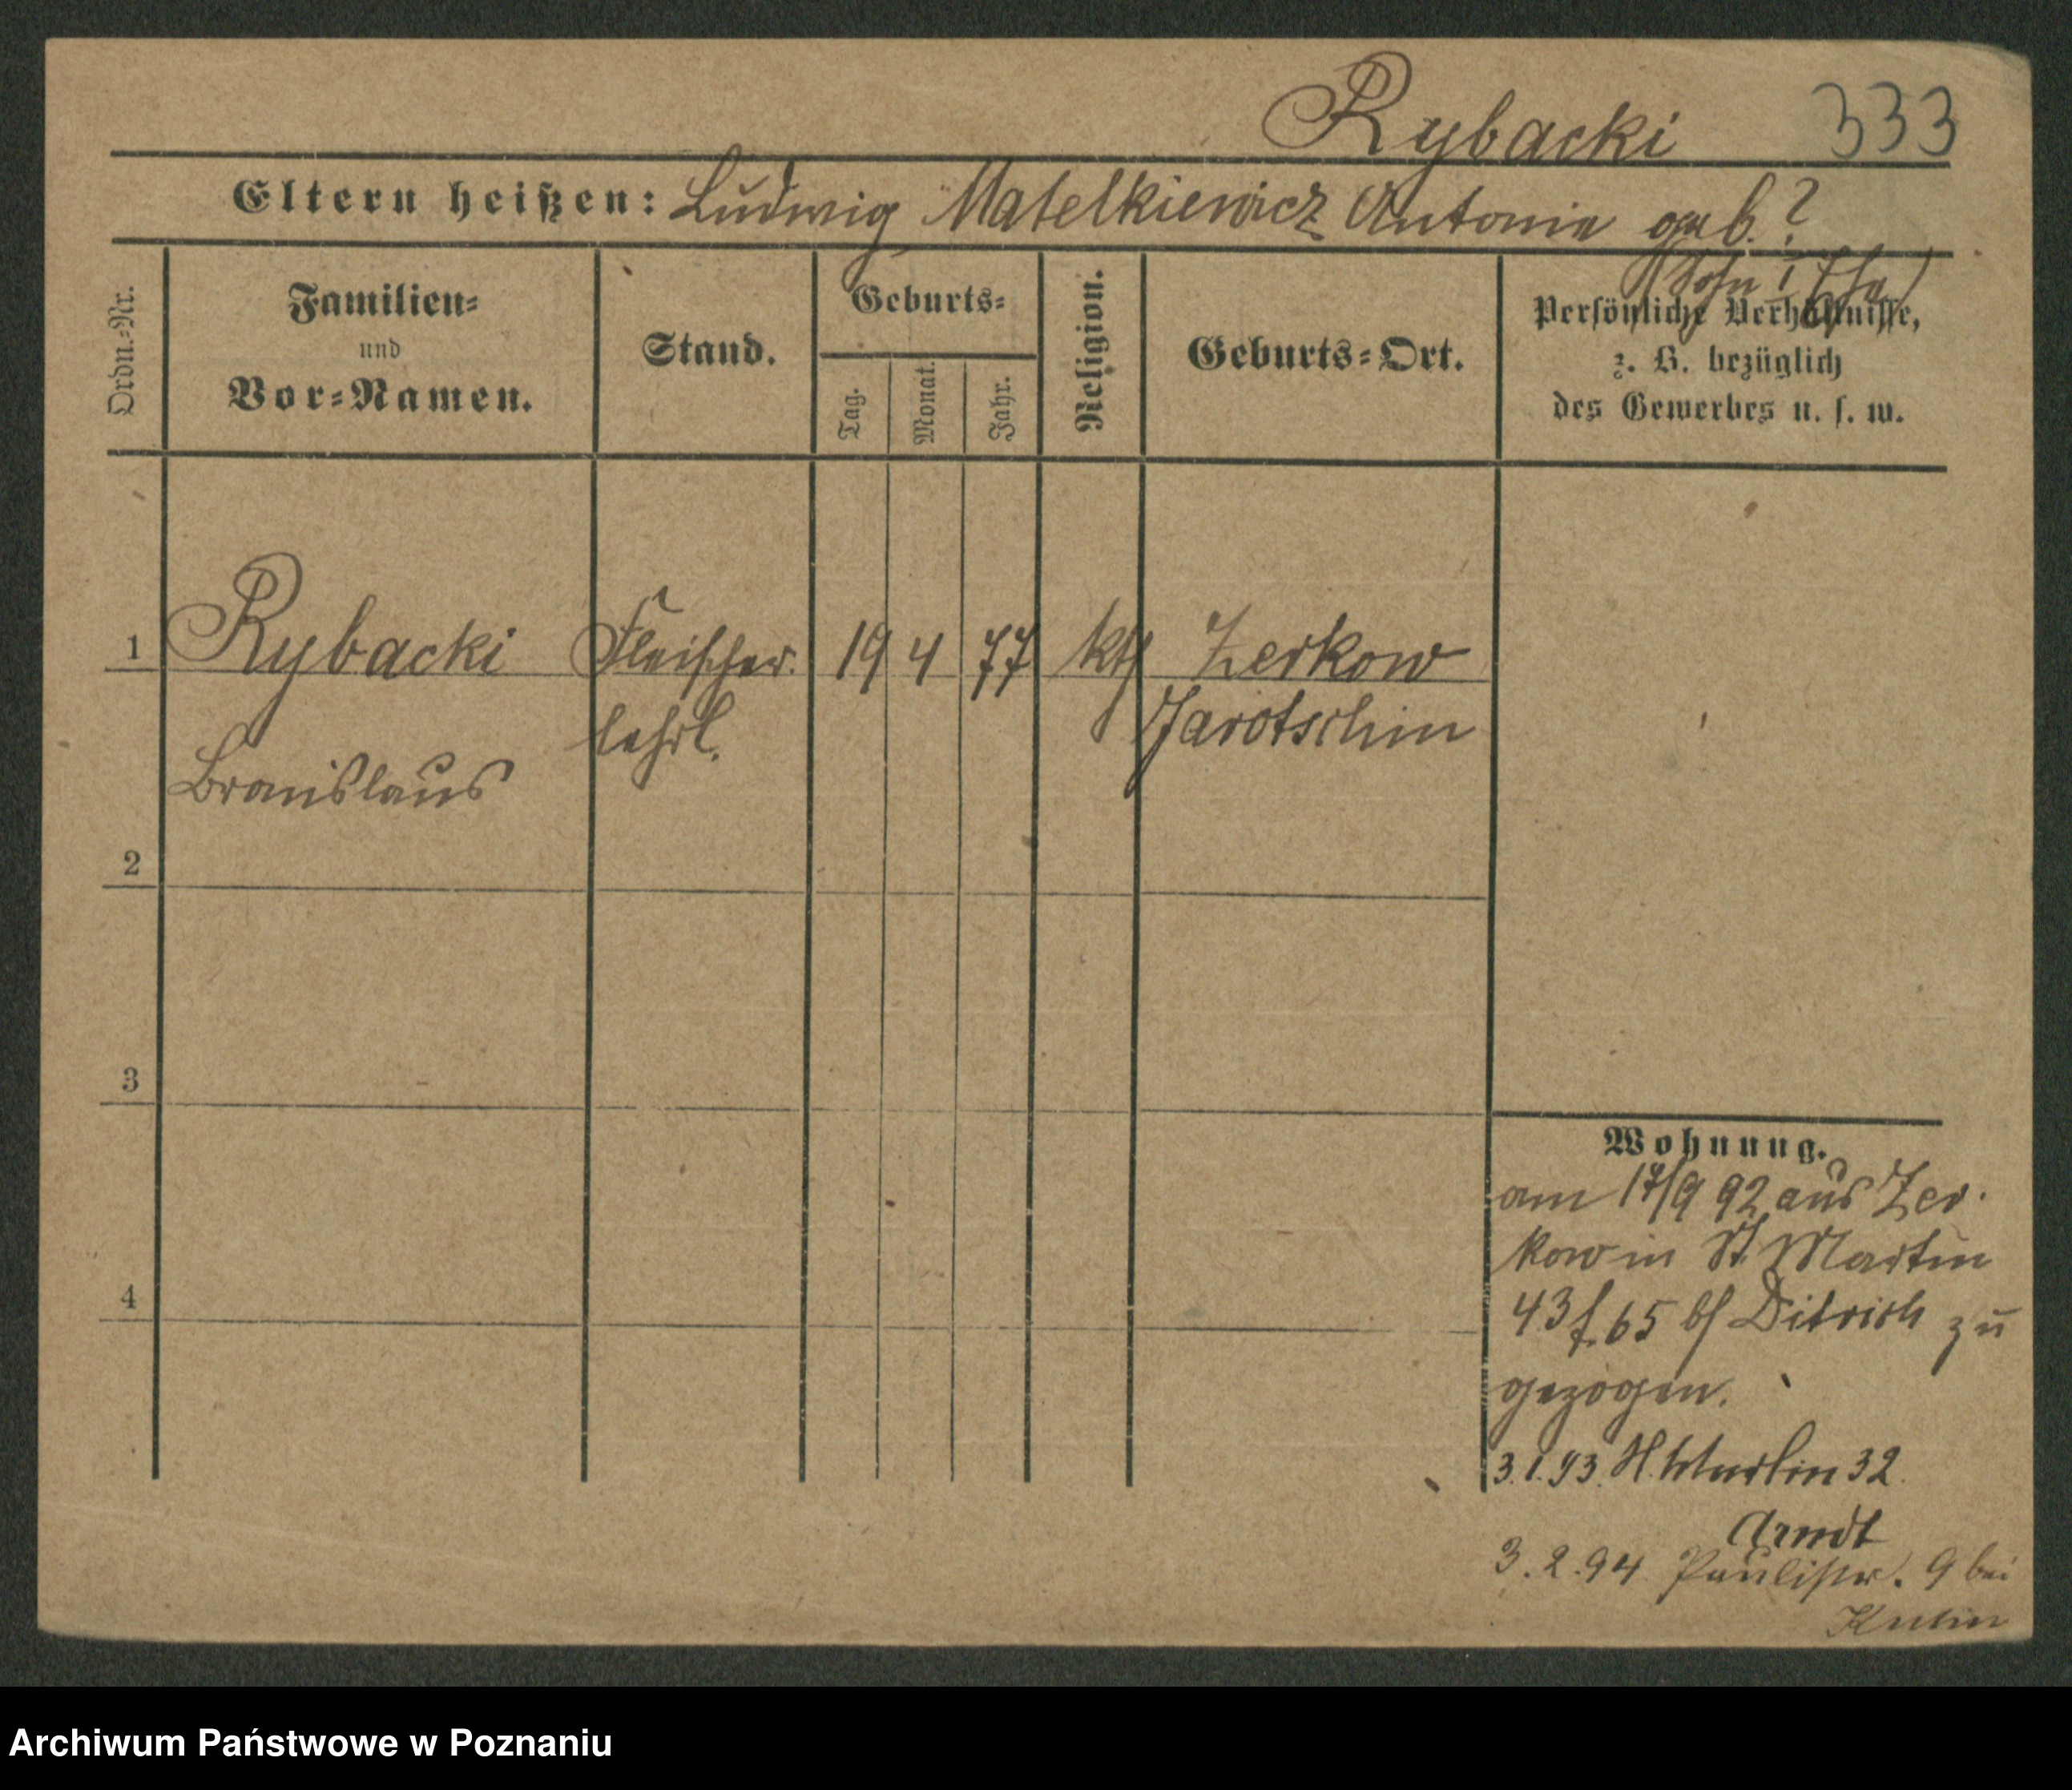 Rybacki 333
Eltern heißen: Ludwig Matelkiewicz Antonie geb. ?
(Sohn I Ehe)
Ordn.-Nr.
Familien-
und
Vor-Namen.
Stand.
Geburts-
Tag.
Monat.
Jahr.
Religion.
Geburts-Ort.
Persönliche Verhältnisse,
z. B. bezüglich
des Gewerbes u. s. w.
1 Rybacki Fleischer. 19 4 77 kth Zerkow
lehrl. Jarotschin
Bronislaus
2
3
4
Wohnung.
am 17/9 92 aus Zer-
kow in St. Martin
43 65 bei Ditrich zu
gezogen.
3.1.93. St. Martin 32
Arndt
3.2.94 Paulistr. 9 bei
Archiwum Państwowe w Poznaniu